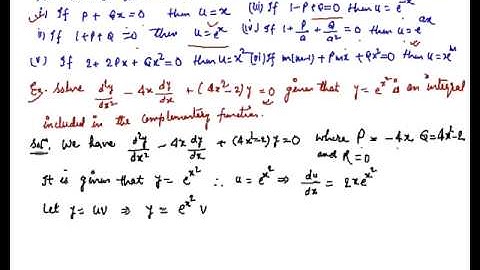 (i) If P + Qx = 0 then u = x (iii) If 1 - P + Q = 0 then u = e^-x
(ii) If 1 + P + Q = 0 then u = e^x (iv) If 1 + P/a + Q/a² = 0 then u = e^ax
(v) If 2 + 2Px + Qx² = 0 then u = x² (vi) If m(m-1) + Pmx + Qx² = 0 then u = x^m
Ex. solve d²y/dx² - 4x dy/dx + (4x² - 2) y = 0 given that y = e^x² is an integral
included in the complementary function.
Sol. We have d²y/dx² - 4x dy/dx + (4x² - 2) y = 0 where P = -4x Q = 4x² - 2
and R = 0
It is given that y = e^x² ∴ u = e^x² ⇒ du/dx = 2x e^x²
Let y = uv ⇒ y = e^x² v